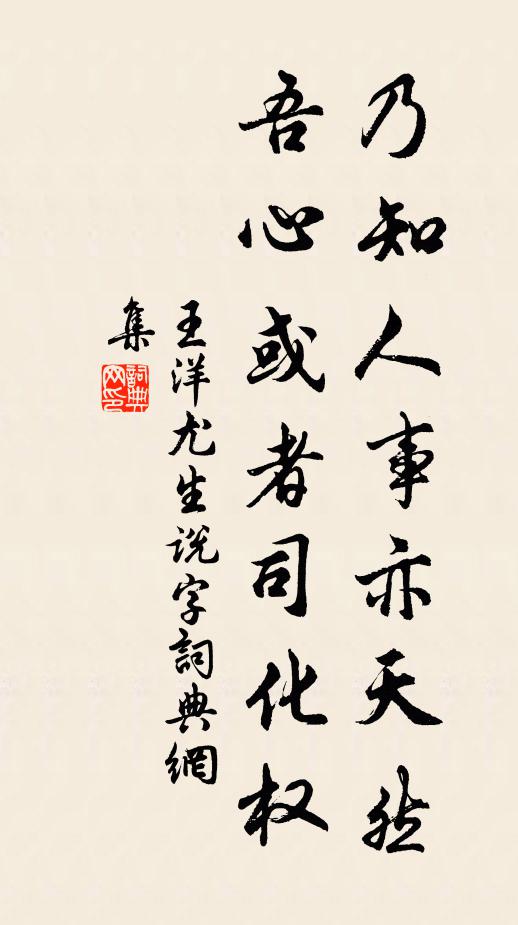 乃知人事亦天然
吾心或者司化权
王洋尤生说字詞典網
集
詞典网印